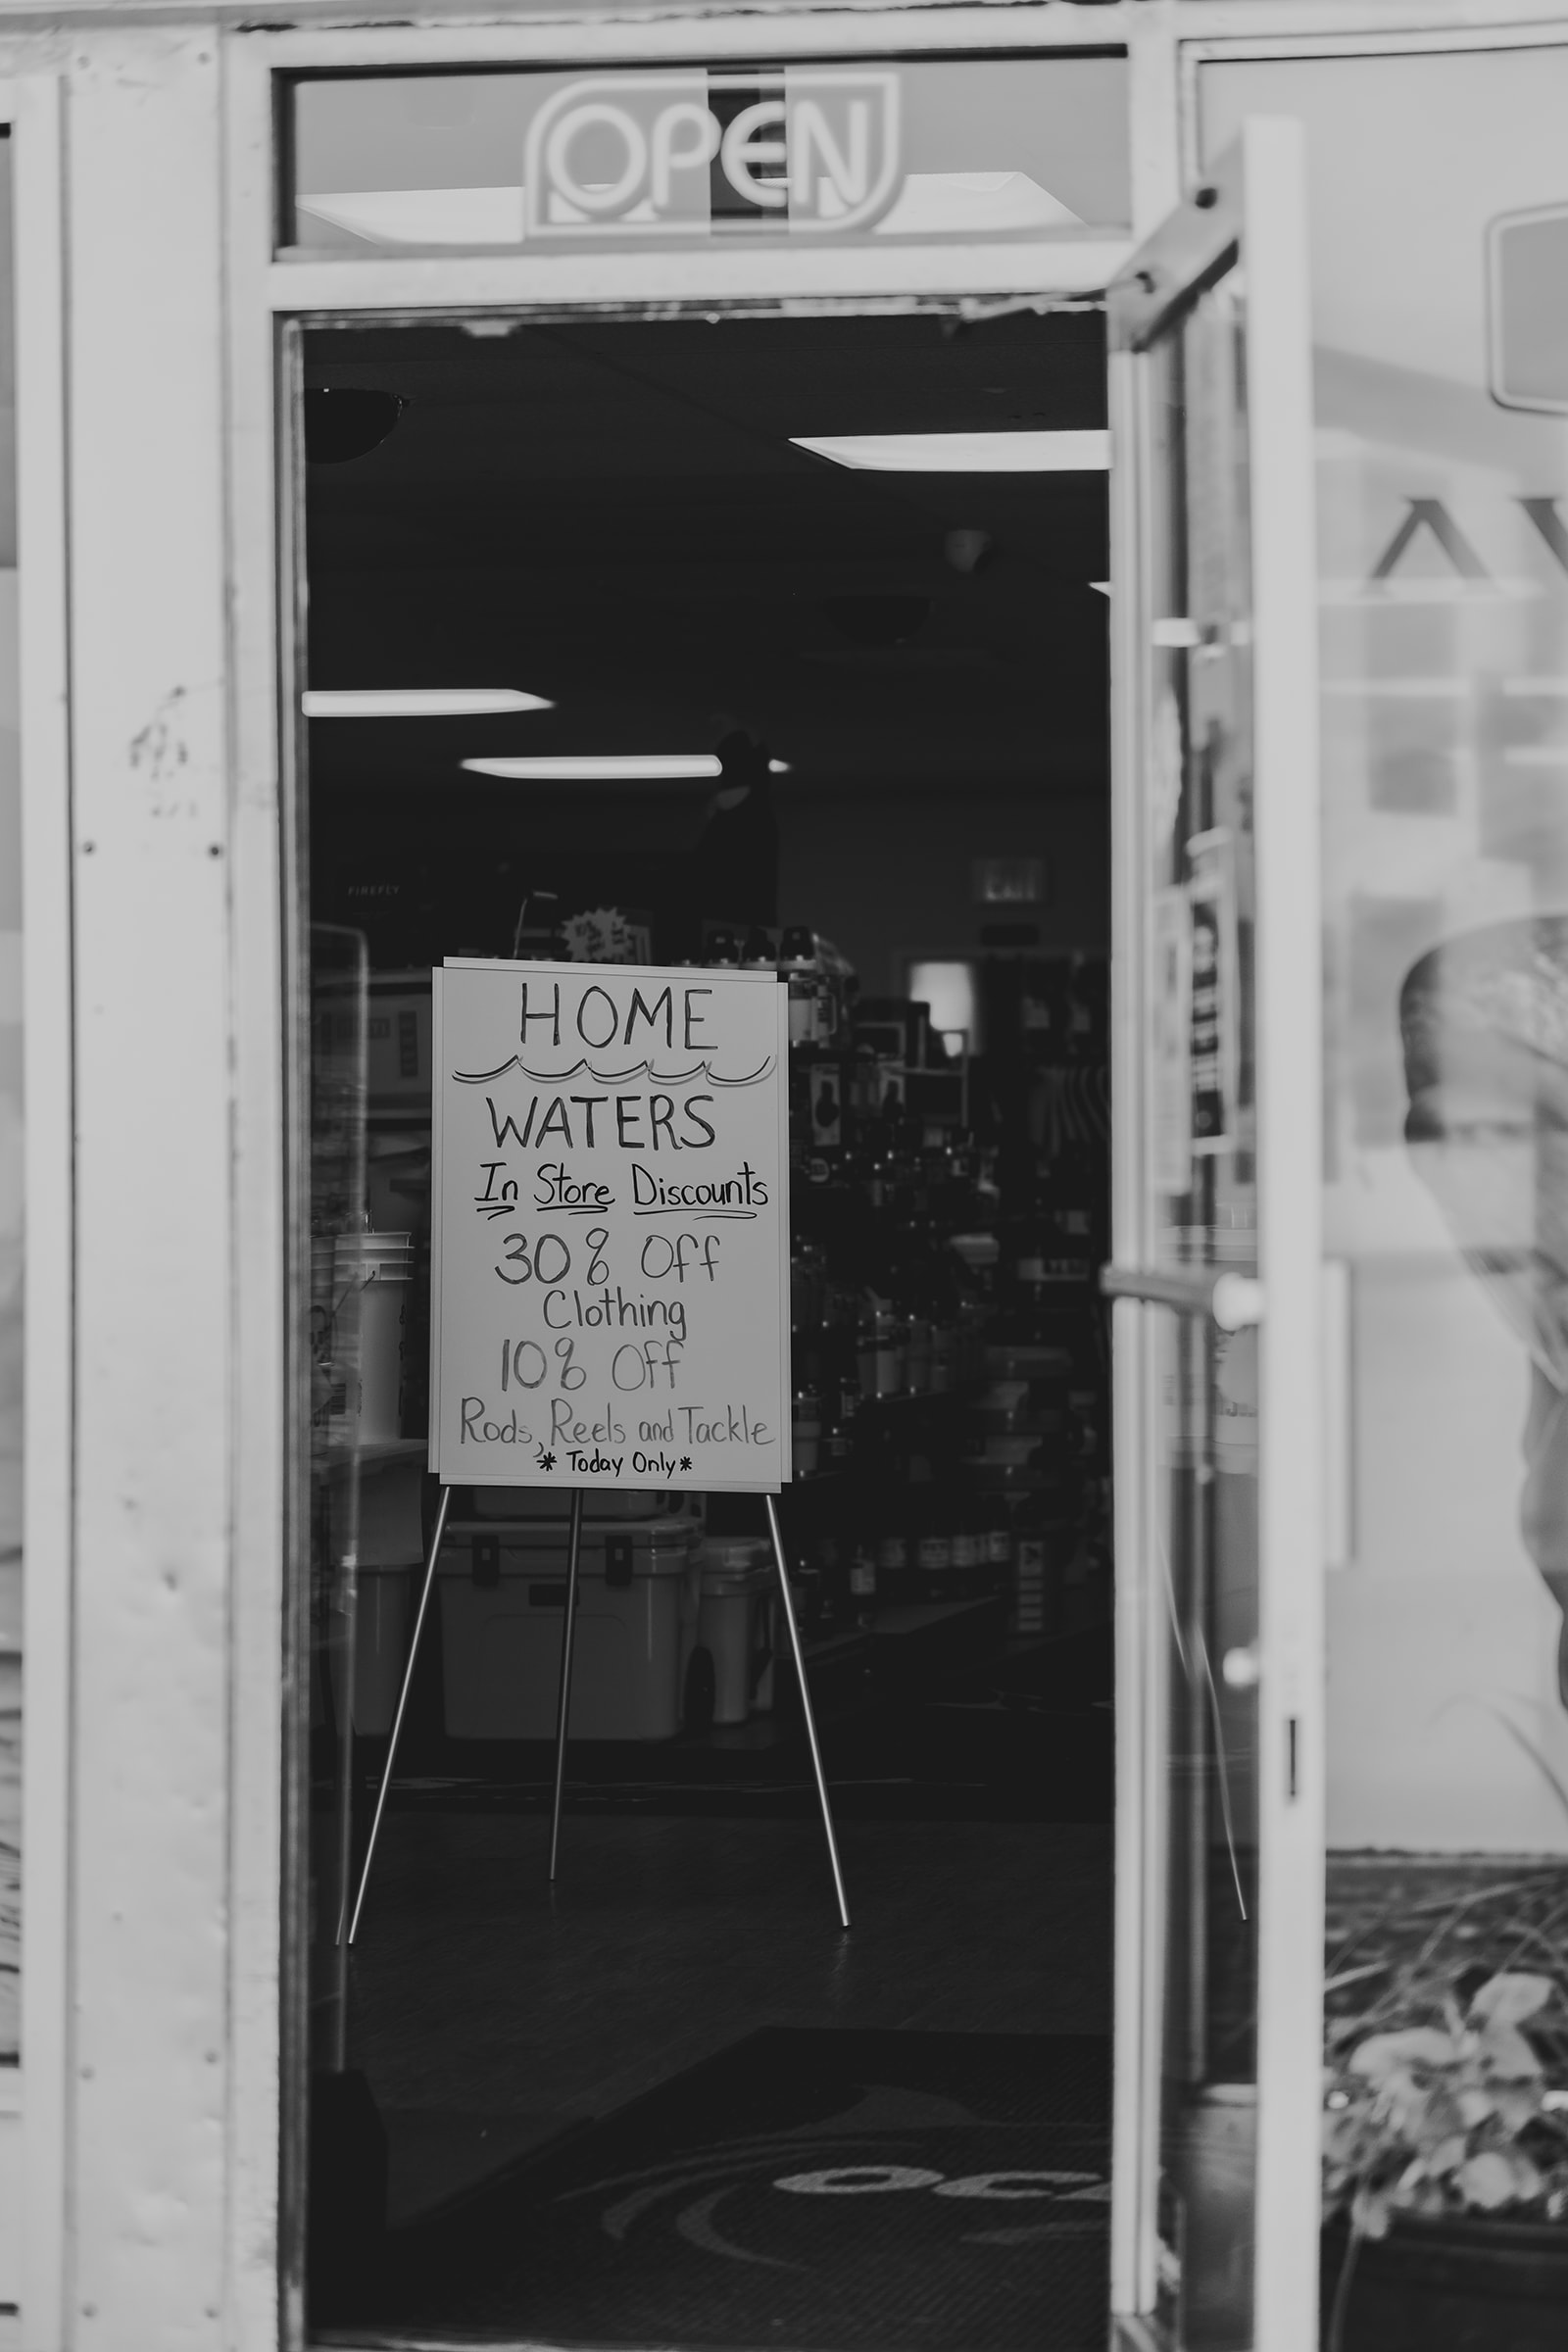 OPEN
FIREFLY
EXIT
HOME
WATERS
In Store Discounts
30% Off
Clothing
10% Off
Rods, Reels and Tackle
* Today Only *